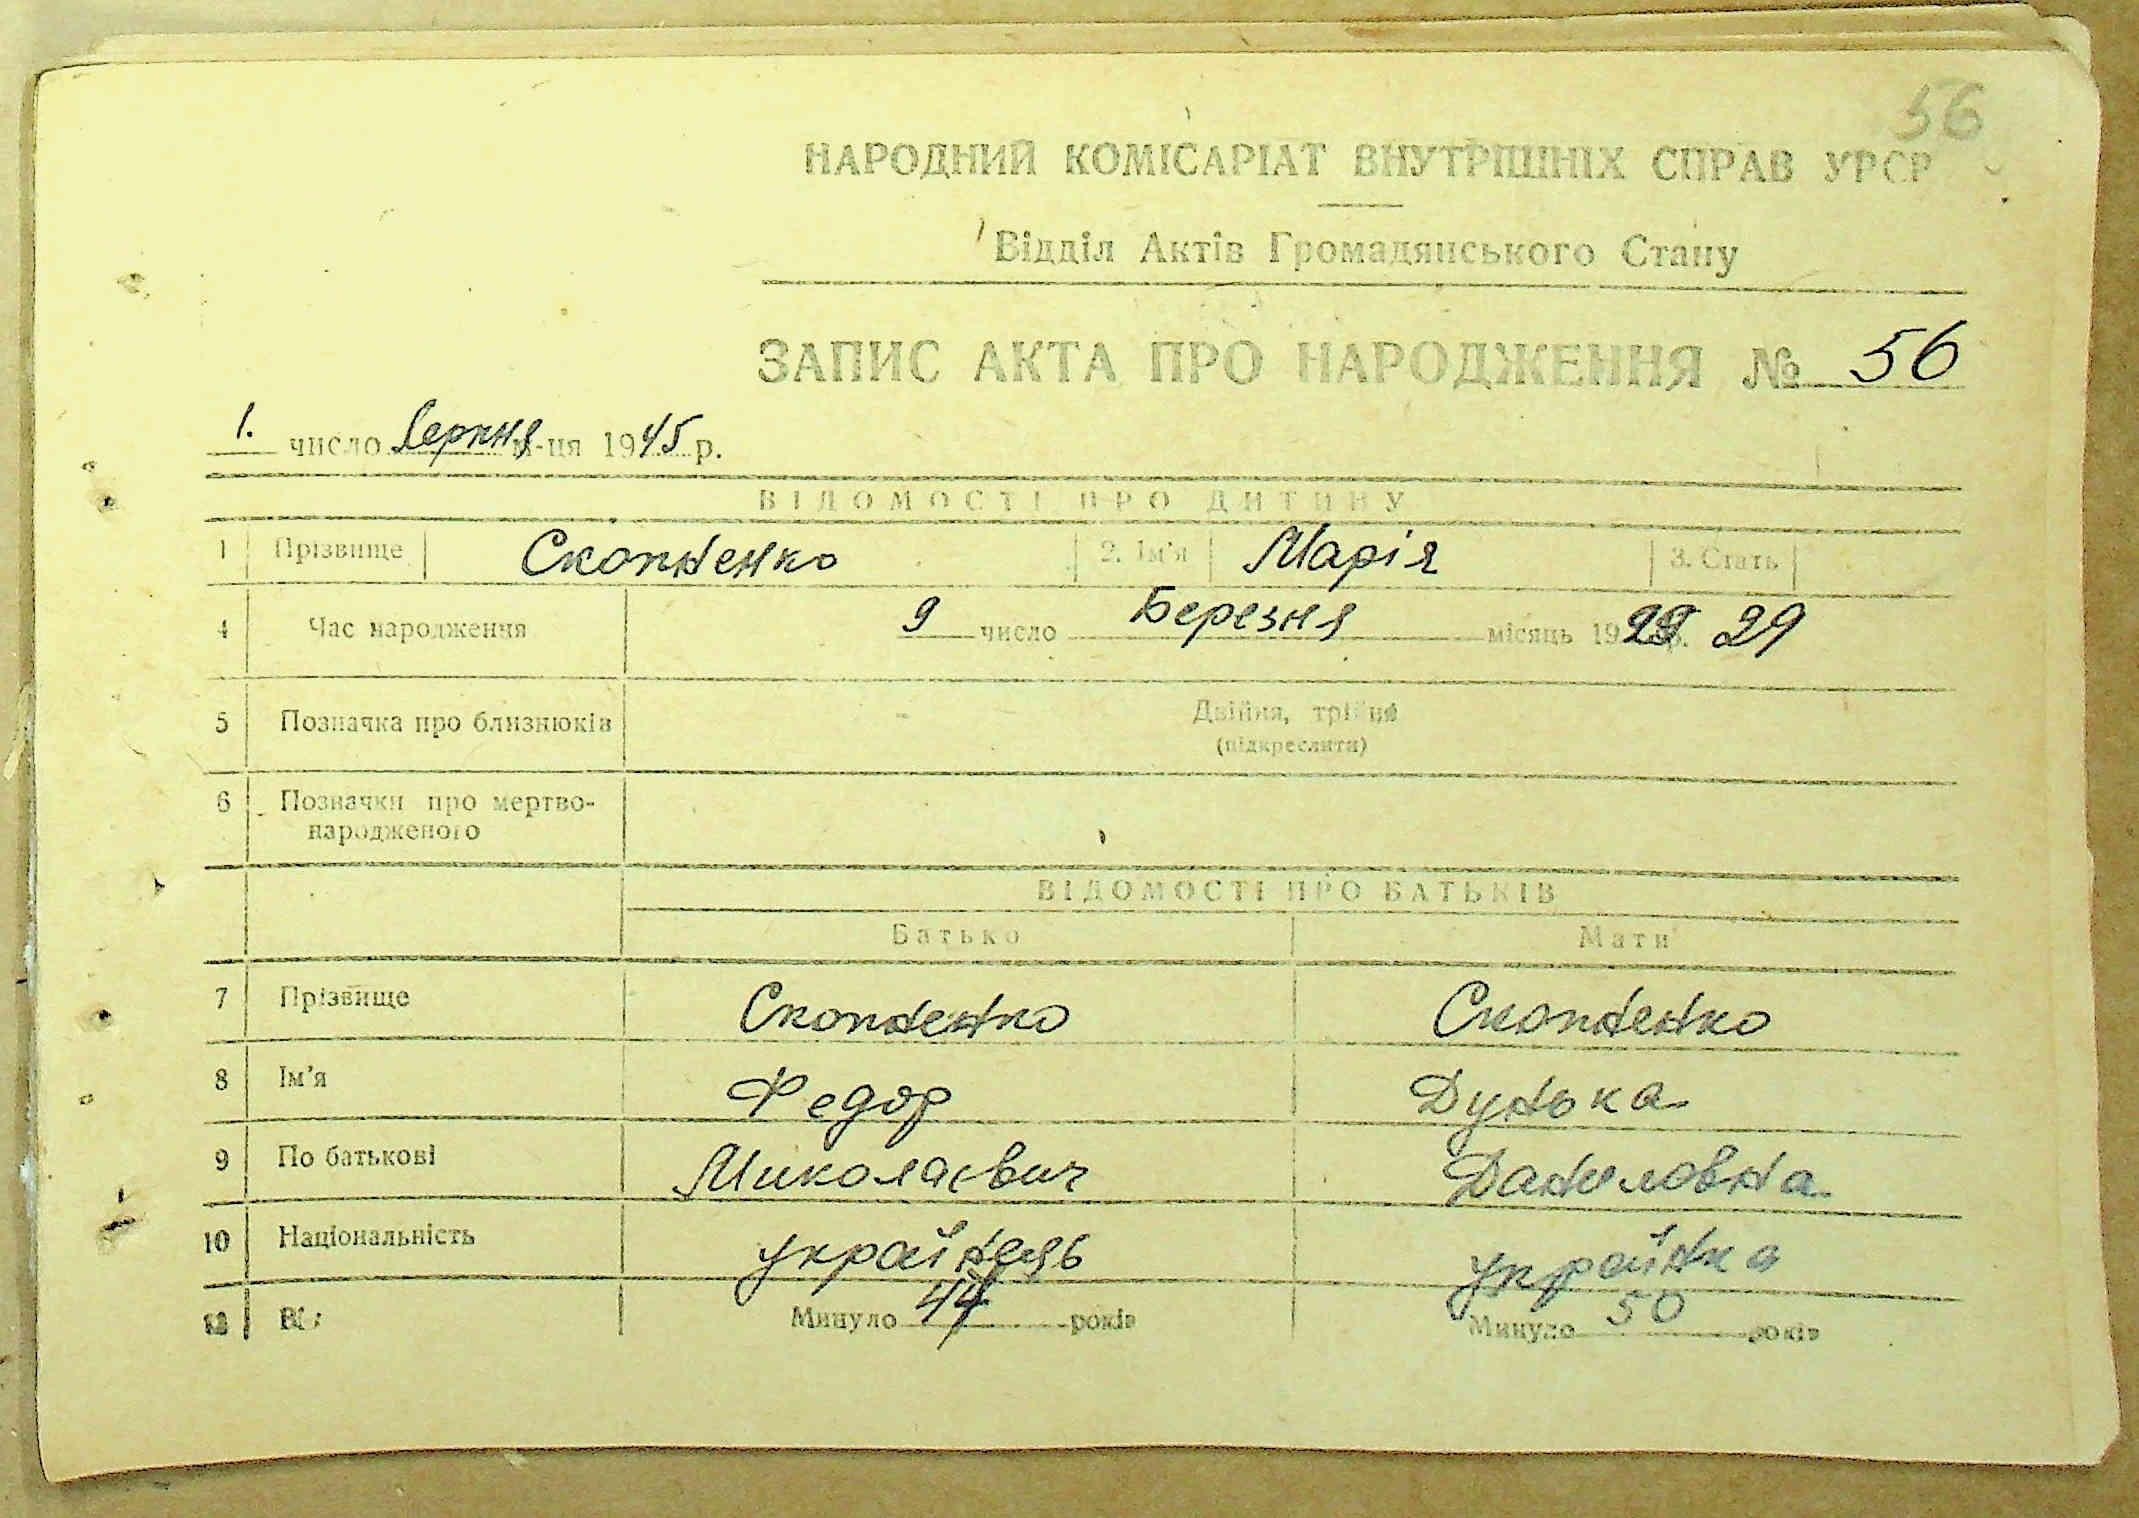 56
НАРОДНИЙ КОМІСАРІАТ ВНУТРІШНІХ СПРАВ УРСР
Відділ Актів Громадянського Стану
ЗАПИС АКТА ПРО НАРОДЖЕННЯ № 56
1. число Серпня м-ця 1945 р.
ВІДОМОСТІ ПРО ДИТИНУ
1 Прізвище Скопненко 2. Ім'я Марія 3. Стать
4 Час народження 9 число Березня місяць 1929 р. 29
5 Позначка про близнюків Двійня, трійня
(підкреслити)
6 Позначки про мертво-
народженого
ВІДОМОСТІ ПРО БАТЬКІВ
Батько Мати
7 Прізвище Скопненко Скопненко
8 Ім'я Федор Дунька
9 По батькові Миколаевич Даниловна
10 Національність українець українка
Минуло 44 років Минуло 50 років